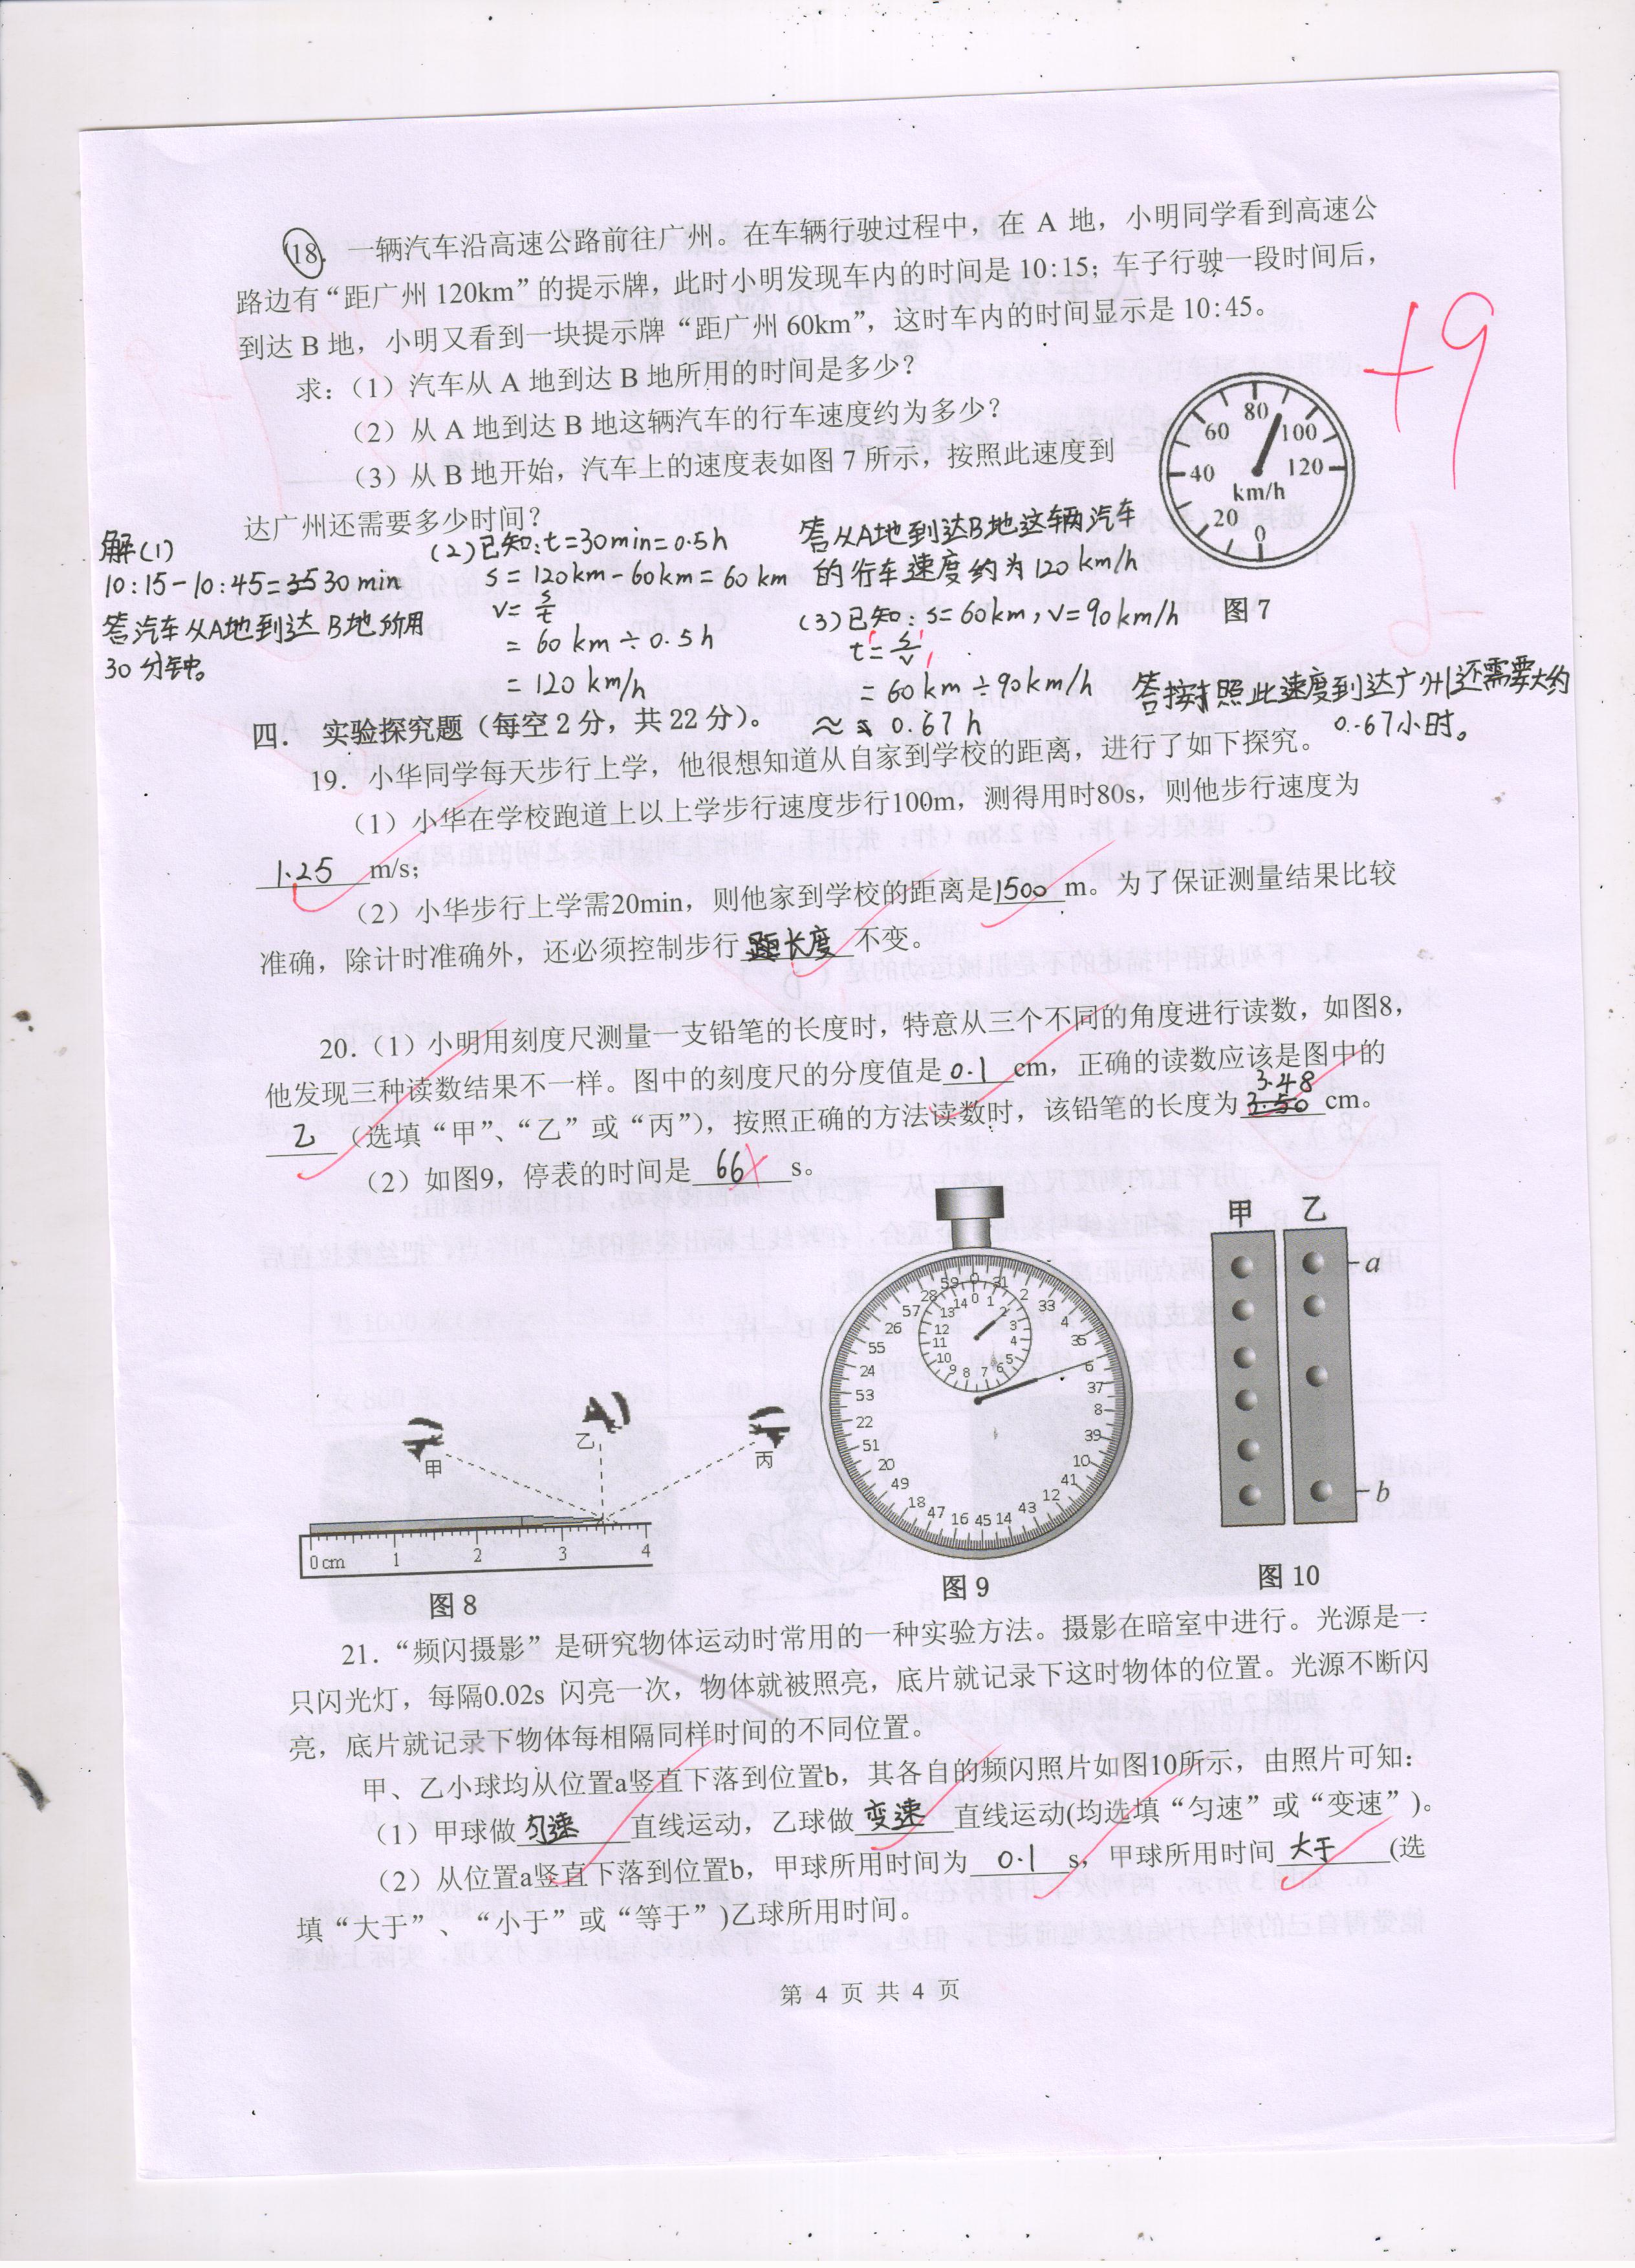 18. 一辆汽车沿高速公路前往广州。在车辆行驶过程中，在 A 地，小明同学看到高速公
路边有“距广州 120km”的提示牌，此时小明发现车内的时间是 10:15；车子行驶一段时间后，
到达 B 地，小明又看到一块提示牌“距广州 60km”，这时车内的时间显示是 10:45。
求：（1）汽车从 A 地到达 B 地所用的时间是多少？
（2）从 A 地到达 B 地这辆汽车的行车速度约为多少？
（3）从 B 地开始，汽车上的速度表如图 7 所示，按照此速度到
达广州还需要多少时间？
+9
0 20 40 60 80 100 120
km/h
图7
解(1)
10:15-10:45=30min
答汽车从A地到达B地所用
30分钟。
(2)已知:t=30min=0.5h
s=120km-60km=60km
v=s/t
=60km÷0.5h
=120km/h
答从A地到达B地这辆汽车
的行车速度约为120km/h
(3)已知:s=60km,v=90km/h
t=s/v
=60km÷90km/h
≈0.67h
答按照此速度到达广州还需要大约
0.67小时。
四． 实验探究题（每空 2 分，共 22 分）。
19．小华同学每天步行上学，他很想知道从自家到学校的距离，进行了如下探究。
（1）小华在学校跑道上以上学步行速度步行100m，测得用时80s，则他步行速度为
1.25 m/s；
（2）小华步行上学需20min，则他家到学校的距离是1500 m。为了保证测量结果比较
准确，除计时准确外，还必须控制步行 长度 不变。
20．（1）小明用刻度尺测量一支铅笔的长度时，特意从三个不同的角度进行读数，如图8，
他发现三种读数结果不一样。图中的刻度尺的分度值是 0.1 cm，正确的读数应该是图中的
乙 （选填“甲”、“乙”或“丙”），按照正确的方法读数时，该铅笔的长度为 3.50 3.48 cm。
（2）如图9，停表的时间是 66 s。
甲 乙 丙
0cm 1 2 3 4
图 8
59 0 31 2 33 4 35 6 37 8 39 10 41 12 43 14 45 16 47 18 49 20 51 22 53 24 55 26 57 28
0 1 2 3 4 5 6 7 8 9 10 11 12 13 14
图 9
甲 乙
a
b
图 10
21．“频闪摄影”是研究物体运动时常用的一种实验方法。摄影在暗室中进行。光源是一
只闪光灯，每隔0.02s 闪亮一次，物体就被照亮，底片就记录下这时物体的位置。光源不断闪
亮，底片就记录下物体每相隔同样时间的不同位置。
甲、乙小球均从位置a竖直下落到位置b，其各自的频闪照片如图10所示，由照片可知：
（1）甲球做 匀速 直线运动，乙球做 变速 直线运动(均选填“匀速”或“变速”)。
（2）从位置a竖直下落到位置b，甲球所用时间为 0.1 s，甲球所用时间 大于 (选
填“大于”、“小于”或“等于”)乙球所用时间。
第 4 页 共 4 页